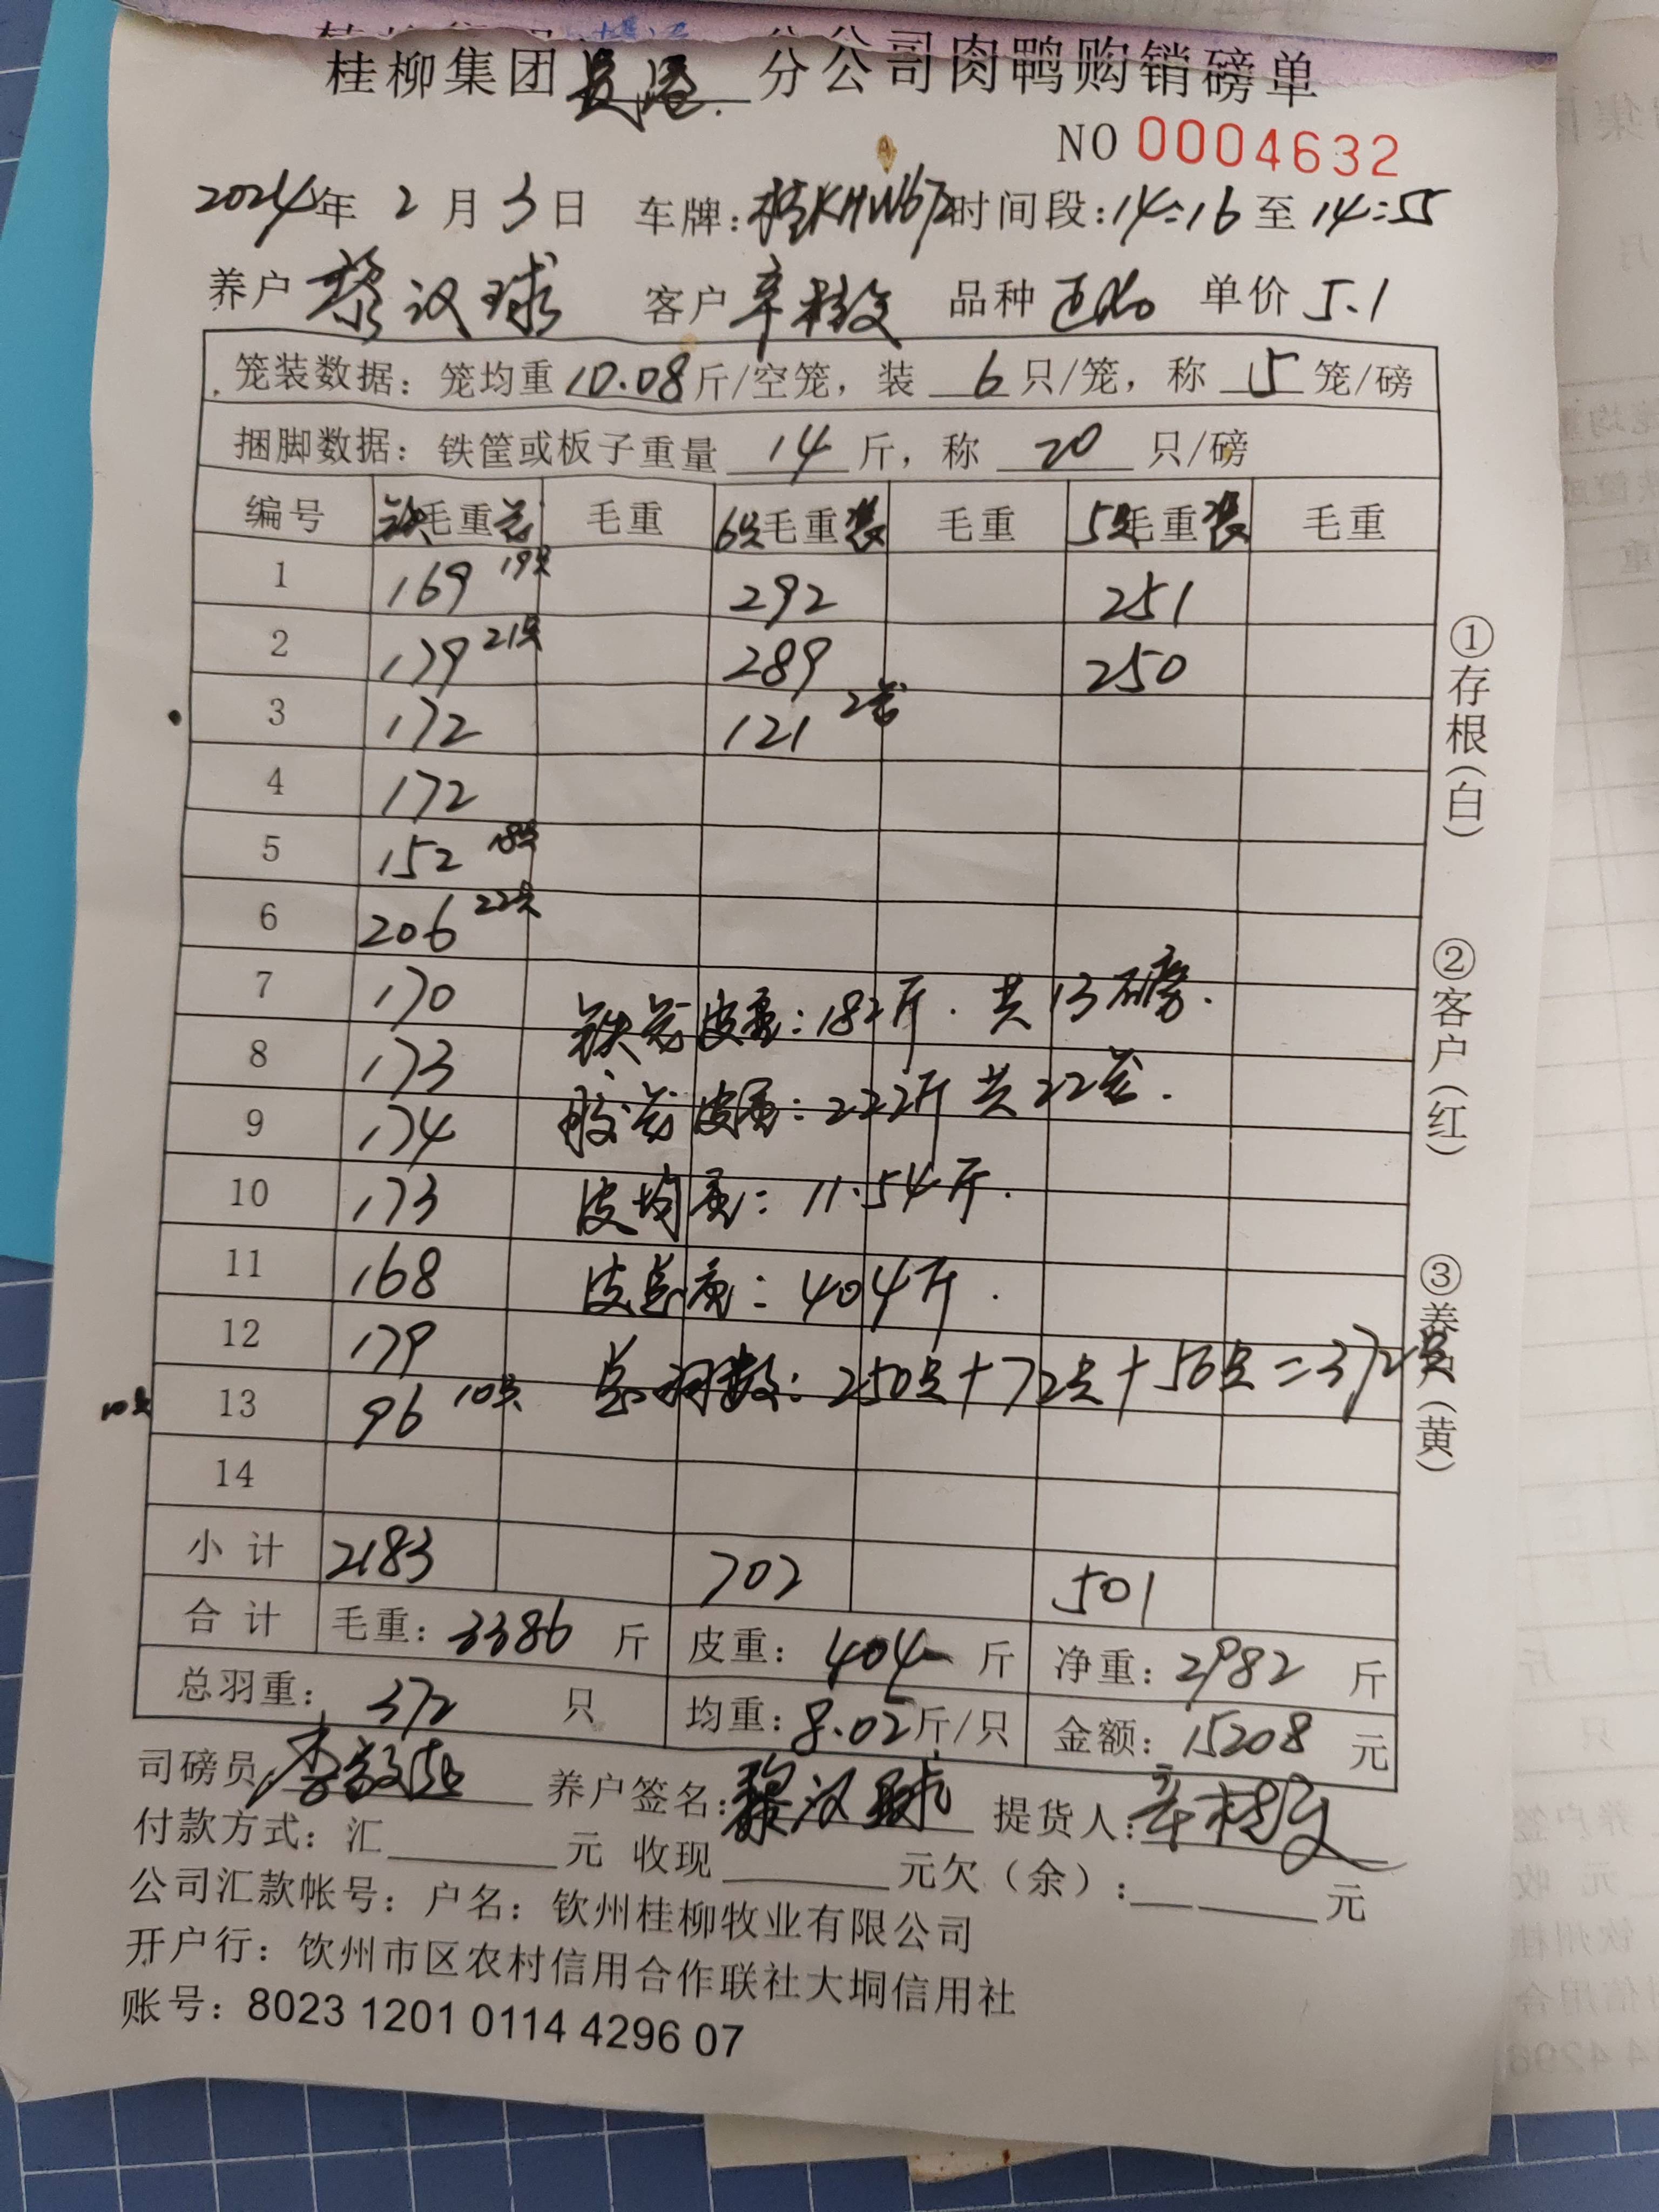 桂柳集团 灵港 分公司肉鸭购销磅单
NO 0004632
2024年 2 月 3 日 车牌: 桂KHW672 时间段: 14:16 至 14:55
养户 黎汉球 客户 辛桂文 品种 单价 5.1
笼装数据: 笼均重 10.08 斤/空笼, 装 6 只/笼, 称 15 笼/磅
捆脚数据: 铁筐或板子重量 14 斤, 称 20 只/磅
编号 铁毛重笼 毛重 6只毛重装 毛重 5只毛重装 毛重
1 169 19只 292 251
2 179 21只 289 250
3 172 121 2笼
4 172
5 152 18只
6 206 22只
7 170
铁笼皮重: 182斤. 共13磅.
8 173
胶笼皮重: 222斤 共22笼.
9 174
皮均重: 11.54斤.
10 173
11 168
皮总重: 404斤.
12 179
总羽数: 250只+72只+50只=372只
10只 13 96 10只
14
小计 2183 702 501
合计 毛重: 3386 斤 皮重: 404 斤 净重: 2982 斤
总羽重: 372 只 均重: 8.02 斤/只 金额: 15208 元
司磅员: 养户签名: 黎汉球 提货人: 辛桂文
付款方式: 汇 元 收现 元欠(余): 元
公司汇款帐号: 户名: 钦州桂柳牧业有限公司
开户行: 饮州市区农村信用合作联社大垌信用社
账号: 8023 1201 0114 4296 07
①存根(白)
②客户(红)
③养户(黄)